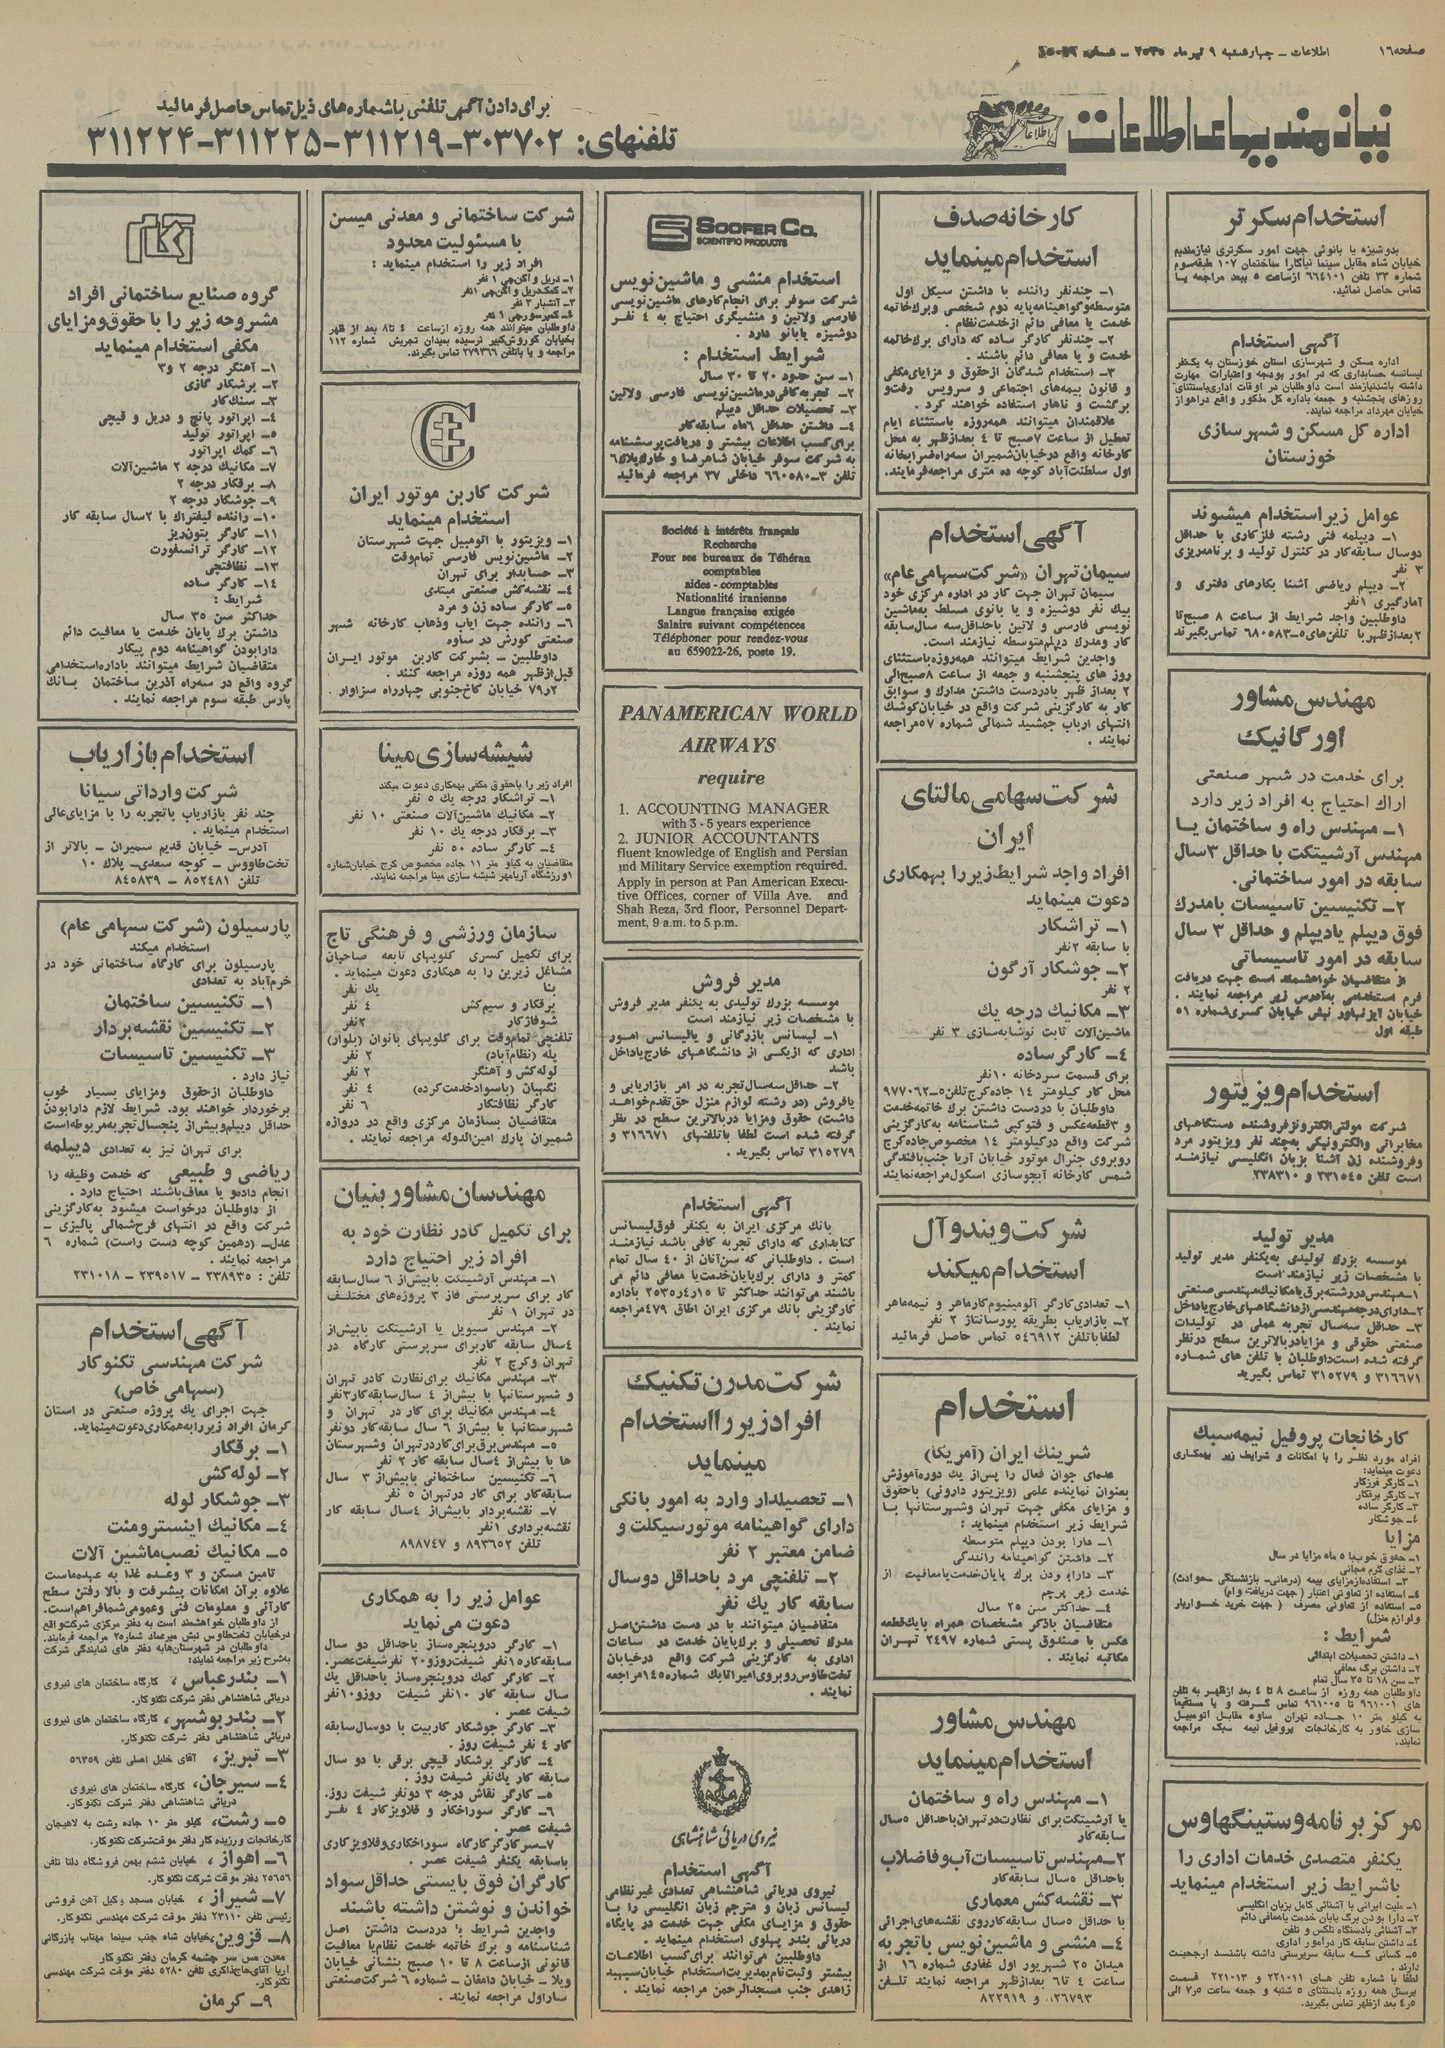 صفحه ۱۶
اطلاعات ـ چهارشنبه ۹ تیر ماه ۲۵۳۵ ـ شماره
نیازمندیهای اطلاعات
برای دادن آگهی تلفنی باشماره‌های ذیل تماس حاصل فرمائید
تلفنهای: ۳۰۳۷۰۲-۳۱۱۲۱۹-۳۱۱۲۲۵-۳۱۱۲۲۴
استخدام سکرتر
بدوشیزه یا بانوئی جهت امور سکرتری نیازمندیم
خیابان شاه مقابل سینما نیاگارا ساختمان ۱۰۷ طبقه سوم
شماره ۳۳ تلفن ۶۶۴۱۰۱ ازساعت ۵ ببعد مراجعه یا
تماس حاصل نمائید.
آگهی استخدام
اداره مسکن و شهرسازی استان خوزستان به یکنفر
لیسانسه حسابداری که در امور بودجه و اعتبارات مهارت
داشته باشد نیازمند است داوطلبان در اوقات اداری باستثنای
روزهای پنجشنبه و جمعه باداره کل مذکور واقع در اهواز
خیابان مهرداد مراجعه نمایند.
اداره کل مسکن و شهرسازی
خوزستان
عوامل زیر استخدام میشوند
۱ـ دیپلمه فنی رشته فلزکاری با حداقل
دوسال سابقه کار در کنترل تولید و برنامه‌ریزی
۳ نفر
۲ـ دیپلم ریاضی آشنا بکارهای دفتری و
آمارگیری ۱ نفر
داوطلبین واجد شرایط از ساعت ۸ صبح تا
۲ بعدازظهر با تلفن‌های ۵ـ۶۸۰۵۸۳ تماس بگیرند
مهندس مشاور
اورگانیک
برای خدمت در شهر صنعتی
اراك احتیاج به افراد زیر دارد
۱ـ مهندس راه و ساختمان یا
مهندس آرشیتکت با حداقل ۳ سال
سابقه در امور ساختمانی.
۲ـ تکنیسین تاسیسات بامدرك
فوق دیپلم یادیپلم و حداقل ۳ سال
سابقه در امور تاسیساتی
از متقاضیان خواهشمند است جهت دریافت
فرم استخدامی به آدرس زیر مراجعه نمایند .
خیابان آیزنهاور نبش خیابان کسری شماره ۵۱
طبقه اول
استخدام ویزیتور
شرکت مولتی الکترونز فروشنده دستگاههای
مخابراتی والکترونیکی به چند نفر ویزیتور مرد
وفروشنده زن آشنا بزبان انگلیسی نیازمند
است تلفن ۲۳۱۵۴۵ و ۲۳۸۳۱۰
مدیر تولید
موسسه بزرگ تولیدی به یکنفر مدیر تولید
با مشخصات زیر نیازمند است
۱ـ مهندس در رشته برق یا مکانیک مهندسی صنعتی
۲ـ دارای درجه مهندسی از دانشگاههای خارج یا داخل
۳ـ حداقل سه سال تجربه عملی در تولیدات
صنعتی حقوقی و مزایا در بالاترین سطح در نظر
گرفته شده است داوطلبان با تلفن های شماره
۳۱۶۶۷۱ و ۳۱۵۲۷۹ تماس بگیرید
کارخانجات پروفیل نیمه سبک
افراد مورد نظر را با امکانات و شرایط زیر بهمکاری
دعوت مینماید:
۱ـ کارگر فرزکار
۲ـ کارگر برقکار
۳ـ کارگر ساده
۴ـ جوشکار
مزایا
۱ـ حقوق خوب با ۵ ماه مزایا در سال
۲ـ غذای گرم مجانی
۳ـ استفاده از مزایای بیمه (درمانی- بازنشستگی - حوادث)
۴ـ استفاده از تعاونی اعتبار (جهت دریافت وام)
۵ـ استفاده از تعاونی مصرف ( جهت خرید خواربار
ولوازم منزل)
شرایط :
۱ـ داشتن تحصیلات ابتدائی
۲ـ داشتن برگ معافی
۳ـ سن ۱۸ تا ۳۵ سال تمام
داوطلبان همه روزه از ساعت ۸ تا ۴ بعد ازظهر به تلفن
های ۹۶۱۰۰۱ تا ۹۶۱۰۰۵ تماس گرفته و یا مستقیما
به کیلو متر ۱۰ جاده تهران ساوه مقابل اتومبیل
سازی خاور به کارخانجات پروفیل نیمه سبک مراجعه
نمایند.
مرکز برنامه وستینگهاوس
یکنفر متصدی خدمات اداری را
باشرایط زیر استخدام مینماید
۱ـ ملیت ایرانی با آشنائی کامل بزبان انگلیسی
۲ـ دارا بودن برگ پایان خدمت یا معافی دائم
۳ـ آشنائی بادستگاه تلکس و تلفن
۴ـ داشتن سابقه کار در امور اداری
۵ـ کسانی که سابقه سرپرستی داشته باشند ارجحیت
دارند .
لطفا با شماره تلفن های ۲۲۱۰۱۱ و ۲۲۱۰۱۳ قسمت
پرسنل همه روزه باستثنای ۵ شنبه و جمعه ساعت ۷ر۵ الی
۴ر۵ بعد ازظهر تماس بگیرید.
کارخانه صدف
استخدام مینماید
۱ـ چند نفر راننده با داشتن سیکل اول
متوسطه و گواهینامه پایه دوم شخصی و برك خاتمه
خدمت یا معافی دائم از خدمت نظام.
۲ـ چند نفر کارگر ساده که دارای برك خاتمه
خدمت و یا معافی دائم باشند .
۳ـ استخدام شدگان از حقوق و مزایای مکفی
و قانون بیمه‌های اجتماعی و سرویس رفت و
برگشت و ناهار استفاده خواهند کرد .
علاقمندان میتوانند همه روزه باستثناء ایام
تعطیل از ساعت ۷ صبح تا ۴ بعدازظهر به محل
کارخانه واقع در خیابان شمیران سه راه ضرابخانه
اول سلطنت آباد کوچه ده متری مراجعه فرمایند.
آگهی استخدام
سیمان تهران «شرکت سهامی عام»
سیمان تهران جهت کار در اداره مرکزی خود
بیك نفر دوشیزه و یا بانوی مسلط به ماشین
نویسی فارسی و لاتین با حداقل سه سال سابقه
کار و مدرك دیپلم متوسطه نیازمند است.
واجدین شرایط میتوانند همه روزه باستثنای
روز های پنجشنبه و جمعه از ساعت ۸ صبح الی
۲ بعداز ظهر با در دست داشتن مدارك و سوابق
کار به کارگزینی شرکت واقع در خیابان کوشك
انتهای ارباب جمشید شمالی شماره ۵۷ مراجعه
نمایند .
شرکت سهامی مالتای
ایران
افراد واجد شرایط زیر را بهمکاری
دعوت مینماید
۱ـ تراشکار
با سابقه ۲ نفر
۲ـ جوشکار آرگون
۲ نفر
۳ـ مکانیك درجه یك
ماشین آلات ثابت نوشابه سازی ۳ نفر
۴ـ کارگر ساده
برای قسمت سردخانه ۱۰ نفر
محل کار کیلومتر ۱۴ جاده کرج تلفن ۵ـ۹۷۷۰۶۲
داوطلبان با در دست داشتن برك خاتمه خدمت
و ۳ قطعه عکس و فتوکپی شناسنامه به کارگزینی
شرکت واقع در کیلومتر ۱۴ مخصوص جاده کرج
روبروی جنرال موتور خیابان آریا جنب بافندگی
شمس کارخانه آبجوسازی اسکول مراجعه نمایند
شرکت ویند وآل
استخدام میکند
۱ـ تعدادی کارگر آلومینیوم کار ماهر و نیمه ماهر
۲ـ بازاریاب بطریقه پورسانتاژ ۲ نفر
لطفا با تلفن ۵۴۶۹۱۲ تماس حاصل فرمائید
استخدام
شرینك ایران (آمریکا)
عده‌ای جوان فعال را پس از یك دوره آموزش
بعنوان نماینده علمی (ویزیتور داروئی) با حقوق
و مزایای مکفی جهت تهران وشهرستانها با
شرایط زیر استخدام مینماید :
۱ـ دارا بودن دیپلم متوسطه
۲ـ داشتن گواهینامه رانندگی
۳ـ دارا بودن برك پایان خدمت یا معافیت از
خدمت زیر پرچم
۴ـ حداکثر سن ۲۵ سال
متقاضیان باذکر مشخصات همراه بایك قطعه
عکس با صندوق پستی شماره ۲۴۹۷ تهران
مکاتبه نمایند .
مهندس مشاور
استخدام مینماید
۱ـ مهندس راه و ساختمان
یا آرشیتکت برای نظارت در تهران با حداقل ۵ سال
سابقه کار
۲ـ مهندس تاسیسات آب و فاضلاب
با حداقل ۵ سال سابقه کار
۳ـ نقشه کش معماری
با حداقل ۵ سال سابقه کار روی نقشه های اجرائی
۴ـ منشی و ماشین نویس با تجربه
میدان ۲۵ شهریور اول غفاری شماره ۱۶ از
ساعت ۴ تا ۶ بعدازظهر مراجعه نمایند تلفن
و ۸۲۲۹۱۹
SOOFER CO.
SCIENTIFIC PRODUCTS
استخدام منشی و ماشین نویس
شرکت سوفر برای انجام کارهای ماشین نویسی
فارسی ولاتین و منشیگری احتیاج به ۴ نفر
دوشیزه یا بانو دارد .
شرایط استخدام :
۱ـ سن حدود ۲۰ تا ۳۰ سال
۲ـ تجربه کافی در ماشین نویسی فارسی ولاتین
۳ـ تحصیلات حداقل دیپلم
۴ـ داشتن حداقل ۶ ماه سابقه کار
برای کسب اطلاعات بیشتر و دریافت پرسشنامه
به شرکت سوفر خیابان شاهرضا و خارك پلاك ۶
تلفن ۳ـ۶۶۰۵۸۰ داخلی ۳۷ مراجعه فرمائید
Société à intérêts français
Recherche
Pour ses bureaux de Téhéran
comptables
aides - comptables
Nationalité iranienne
Langue française exigée
Salaire suivant compétences
Téléphoner pour rendez-vous
au 659022-26, poste 19.
PANAMERICAN WORLD
AIRWAYS
require
1. ACCOUNTING MANAGER
with 3 - 5 years experience
2. JUNIOR ACCOUNTANTS
fluent knowledge of English and Persian
and Military Service exemption required.
Apply in person at Pan American Execu-
tive Offices, corner of Villa Ave. and
Shah Reza, 3rd floor, Personnel Depart-
ment, 9 a.m. to 5 p.m.
مدیر فروش
موسسه بزرك تولیدی به یکنفر مدیر فروش
با مشخصات زیر نیازمند است
۱ـ لیسانس بازرگانی و یالیسانس امور
اداری که از یکی از دانشگاههای خارج یا داخل
باشد
۲ـ حداقل سه سال تجربه در امر بازاریابی و
یافروش (در رشته لوازم منزل حق تقدم خواهد
داشت) حقوق ومزایا در بالاترین سطح در نظر
گرفته شده است لطفا با تلفنهای ۳۱۶۶۷۱ و
۳۱۵۲۷۹ تماس بگیرید .
آگهی استخدام
بانك مرکزی ایران به یکنفر فوق لیسانس
کتابداری که دارای تجربه کافی باشد نیازمند
است . داوطلبانی که سن آنان از ۴۰ سال تمام
کمتر و دارای برك پایان خدمت یا معافی دائم می
باشند میتوانند حداکثر تا ۱۵ر۴ر۲۵۳۵ باداره
کارگزینی بانك مرکزی ایران اطاق ۴۷۹ مراجعه
نمایند .
شرکت مدرن تکنیك
افراد زیر را استخدام
مینماید
۱ـ تحصیلدار وارد به امور بانکی
دارای گواهینامه موتورسیکلت و
ضامن معتبر ۲ نفر
۲ـ تلفنچی مرد با حداقل دوسال
سابقه کار یك نفر
متقاضیان میتوانند با در دست داشتن اصل
مدرك تحصیلی و برك پایان خدمت در ساعات
اداری به کارگزینی شرکت واقع در خیابان
تخت طاوس روبروی امیر اتابك شماره ۱۴۵ مراجعه
نمایند .
نیروی دریائی شاهنشاهی
آگهی استخدام
نیروی دریائی شاهنشاهی تعدادی غیر نظامی
لیسانس زبان و مترجم زبان انگلیسی را با
حقوق و مزایای مکفی جهت خدمت در پایگاه
دریائی بندر پهلوی استخدام مینماید .
داوطلبین می‌توانند برای کسب اطلاعات
بیشتر وثبت نام بمدیریت استخدام خیابان سپهبد
زاهدی جنب مسجدالرحمن مراجعه نمایند .
شرکت ساختمانی و معدنی میسن
با مسئولیت محدود
افراد زیر را استخدام مینماید :
۱ـ دریل و اگن‌چی ۱ نفر
۲ـ کمك دریل و اگن‌چی ۱ نفر
۳ـ آتشبار ۳ نفر
۴ـ کمپرسورچی ۱ نفر
داوطلبان میتوانند همه روزه ازساعت ۴ تا ۸ بعد از ظهر
بخیابان کوروش کبیر نرسیده بمیدان تجریش شماره ۱۱۲
مراجعه و یا باتلفن ۲۷۹۳۶۶ تماس بگیرند.
شرکت کاربن موتور ایران
استخدام مینماید
۱ـ ویزیتور با اتومبیل جهت شهرستان
۲ـ ماشین نویس فارسی تمام وقت
۳ـ حسابدار برای تهران
۴ـ نقشه کش صنعتی مبتدی
۵ـ کارگر ساده زن و مرد
۶ـ راننده جهت ایاب وذهاب کارخانه شهر
صنعتی کورش در ساوه
داوطلبین ـ بشرکت کاربن موتور ایران
قبل ازظهر همه روزه مراجعه کنند .
۲ر۷۹ خیابان کاخ جنوبی چهارراه سزاوار .
شیشه سازی مینا
افراد زیر را باحقوق مکفی بهمکاری دعوت میکند
۱ـ تراشکار درجه یك ۵ نفر
۲ـ مکانیك ماشین آلات صنعتی ۱۰ نفر
۳ـ برقکار درجه یك ۱۰ نفر
۴ـ کارگر ساده ۵۰ نفر
متقاضیان به کیلو متر ۱۱ جاده مخصوص کرج خیابان شماره
۱ ورزشگاه آریامهر شیشه سازی مینا مراجعه نمایند.
سازمان ورزشی و فرهنگی تاج
برای تکمیل کسری کلوپهای تابعه صاحبان
مشاغل زیرین را به همکاری دعوت مینماید .
بنا یك نفر
برقکار و سیم کش ۴ نفر
شوفاژکار ۲ نفر
تلفنچی تمام وقت برای کلوپهای بانوان (بلوار)
پله (نظام آباد) ۲ نفر
لوله کش و آهنگر ۲ نفر
نگهبان (باسواد خدمت کرده) ۴ نفر
کارگر نظافتکار ۶ نفر
متقاضیان بسازمان مرکزی واقع در دروازه
شمیران پارك امین الدوله مراجعه نمایند .
مهندسان مشاور بنیان
برای تکمیل کادر نظارت خود به
افراد زیر احتیاج دارد
۱ـ مهندس آرشیتکت با بیش از ۶ سال سابقه
کار برای سرپرستی فاز ۳ پروژه های مختلف
در تهران ۱ نفر
۲ـ مهندس سیویل یا آرشیتکت با بیش از
۴ سال سابقه کار برای سرپرستی کارگاه در
تهران وکرج ۲ نفر
۳ـ مهندس مکانیك برای نظارت کادر تهران
و شهرستانها با بیش از ۴ سال سابقه کار ۳ نفر
۴ـ مهندس مکانیك برای کار در تهران و
شهرستانها با بیش از ۶ سال سابقه کار دو نفر
۵ـ مهندس برق برای کار در تهران وشهرستان
ها با بیش از ۴ سال سابقه کار ۲ نفر
۶ـ تکنیسین ساختمانی با بیش از ۳ سال
سابقه کار برای کار در تهران ۵ نفر
۷ـ نقشه بردار با بیش از ۴ سال سابقه کار
نقشه برداری ۱ نفر
تلفن ۸۹۳۶۵۲ و ۸۹۸۷۴۷
عوامل زیر را به همکاری
دعوت می نماید
۱ـ کارگر دروپنجره ساز با حداقل دو سال
سابقه کار ۱۵ نفر شیفت روز و ۲۰ نفر شیفت عصر.
۲ـ کارگر کمك دروپنجره ساز با حداقل یك
سال سابقه کار ۱۰ نفر شیفت روز و ۱۰ نفر
شیفت عصر .
۳ـ کارگر جوشکار کاربیت با دو سال سابقه
کار ۴ نفر شیفت روز .
۴ـ کارگر برشکار قیچی برقی با دو سال
سابقه کار یك نفر شیفت روز .
۵ـ کارگر نقاش درجه ۳ دو نفر شیفت روز.
۶ـ کارگر سوراخکار و قلاویزکار ۴ نفر
شیفت عصر .
۷ـ سرکارگر کارگاه سوراخکاری وقلاویزکاری
باسابقه یکنفر شیفت عصر .
کارگران فوق بایستی حداقل سواد
خواندن و نوشتن داشته باشند
واجدین شرایط با دردست داشتن اصل
شناسنامه و برك خاتمه خدمت نظام یا معافیت
قانونی ازساعت ۸ تا ۱۰ صبح بنشانی خیابان
ویلا ـ خیابان دامغان ـ شماره ۶ شرکت صنعتی
ساراول مراجعه نمایند .
گروه صنایع ساختمانی افراد
مشروحه زیر را با حقوق ومزایای
مکفی استخدام مینماید
۱ـ آهنگر درجه ۲ و ۳
۲ـ برشکار گازی
۳ـ سنگ کار
۴ـ اپراتور پانچ و دریل و قیچی
۵ـ اپراتور تولید
۶ـ کمك اپراتور
۷ـ مکانیك درجه ۲ ماشین آلات
۸ـ برقکار درجه ۲
۹ـ جوشکار درجه ۲
۱۰ـ راننده لیفتراك با ۲ سال سابقه کار
۱۱ـ کارگر بتون ریز
۱۲ـ کارگر ترانسفورت
۱۳ـ نظافتچی
۱۴ـ کارگر ساده
شرایط :
حداکثر سن ۳۵ سال
داشتن برك پایان خدمت یا معافیت دائم
دارا بودن گواهینامه دوم پیکار
متقاضیان شرایط میتوانند باداره استخدامی
گروه واقع در سه راه آذرین ساختمان بانك
پارس طبقه سوم مراجعه نمایند .
استخدام بازاریاب
شرکت وارداتی سیانا
چند نفر بازاریاب باتجربه را با مزایای عالی
استخدام مینماید .
آدرس ـ خیابان قدیم شمیران ـ بالاتر از
تخت طاووس ـ کوچه سعدی ـ پلاك ۱۰
تلفن ۸۵۲۴۸۱ ـ ۸۴۵۸۳۹
پارسیلون (شرکت سهامی عام)
استخدام میکند
پارسیلون برای کارگاه ساختمانی خود در
خرم‌آباد به تعدادی
۱ـ تکنیسین ساختمان
۲ـ تکنیسین نقشه بردار
۳ـ تکنیسین تاسیسات
نیاز دارد .
داوطلبان ازحقوق ومزایای بسیار خوب
برخوردار خواهند بود. شرایط لازم دارا بودن
حداقل دیپلم و بیش از پنجسال تجربه مربوطه است
برای تهران نیز به تعدادی دیپلمه
ریاضی و طبیعی که خدمت وظیفه را
انجام داده و یا معاف باشند احتیاج دارد .
از داوطلبان درخواست میشود به کارگزینی
شرکت واقع در انتهای فرح شمالی پالیزی ـ
عدل ـ (دهمین کوچه دست راست) شماره ۶
مراجعه نمایند .
تلفن : ۲۳۸۹۳۵ ـ ۲۳۹۵۱۷ ـ ۲۳۱۰۱۸
آگهی استخدام
شرکت مهندسی تکنوکار
(سهامی خاص)
جهت اجرای یك پروژه صنعتی در استان
کرمان افراد زیر را به همکاری دعوت مینماید.
۱ـ برقکار
۲ـ لوله کش
۳ـ جوشکار لوله
۴ـ مکانیك اینسترومنت
۵ـ مکانیك نصب ماشین آلات
تامین مسکن و ۳ وعده غذا به عهده ماست
علاوه برآن امکانات پیشرفت و بالا رفتن سطح
کارآئی و معلومات فنی وعمومی شما فراهم است.
از داوطلبان خواهشمند است به دفتر مرکزی شرکت واقع
در خیابان تخت طاوس نبش میرعماد شماره ۲ مراجعه فرمایند.
داوطلبان در شهرستان‌ها به دفتر های نمایندگی شرکت
بشرح زیر مراجعه نمایند:
۱ـ بندرعباس، کارگاه ساختمان های نیروی
دریائی شاهنشاهی دفتر شرکت تکنوکار.
۲ـ بندر بوشهر، کارگاه ساختمان های نیروی
دریائی شاهنشاهی دفتر شرکت تکنوکار.
۳ـ تبریز، آقای خلیل اصلی تلفن ۵۶۳۵۹
۴ـ سیرجان، کارگاه ساختمان های نیروی
دریائی شاهنشاهی دفتر شرکت تکنوکار.
۵ـ رشت، کیلو متر ۱۰ جاده رشت به لاهیجان
کارخانجات و رزیده کار دفتر موقت شرکت تکنوکار.
۶ـ اهواز، خیابان ششم بهمن فروشگاه دلتا تلفن
۲۵۶۵۶ دفتر موقت شرکت تکنوکار.
۷ـ شیراز، خیابان مسجد وکیل آهن فروشی
رئیسی تلفن ۲۳۱۱۰ دفتر موقت شرکت مهندسی تکنوکار.
۸ـ قزوین، خیابان شاه جنب سینما مهتاب بازرگانی
معدن مس سر چشمه کرمان دفتر تکنوکار
آریا آقای حاج ذاکری تلفن ۵۲۸۰ دفتر موقت شرکت مهندسی
تکنوکار.
۹ـ کرمان